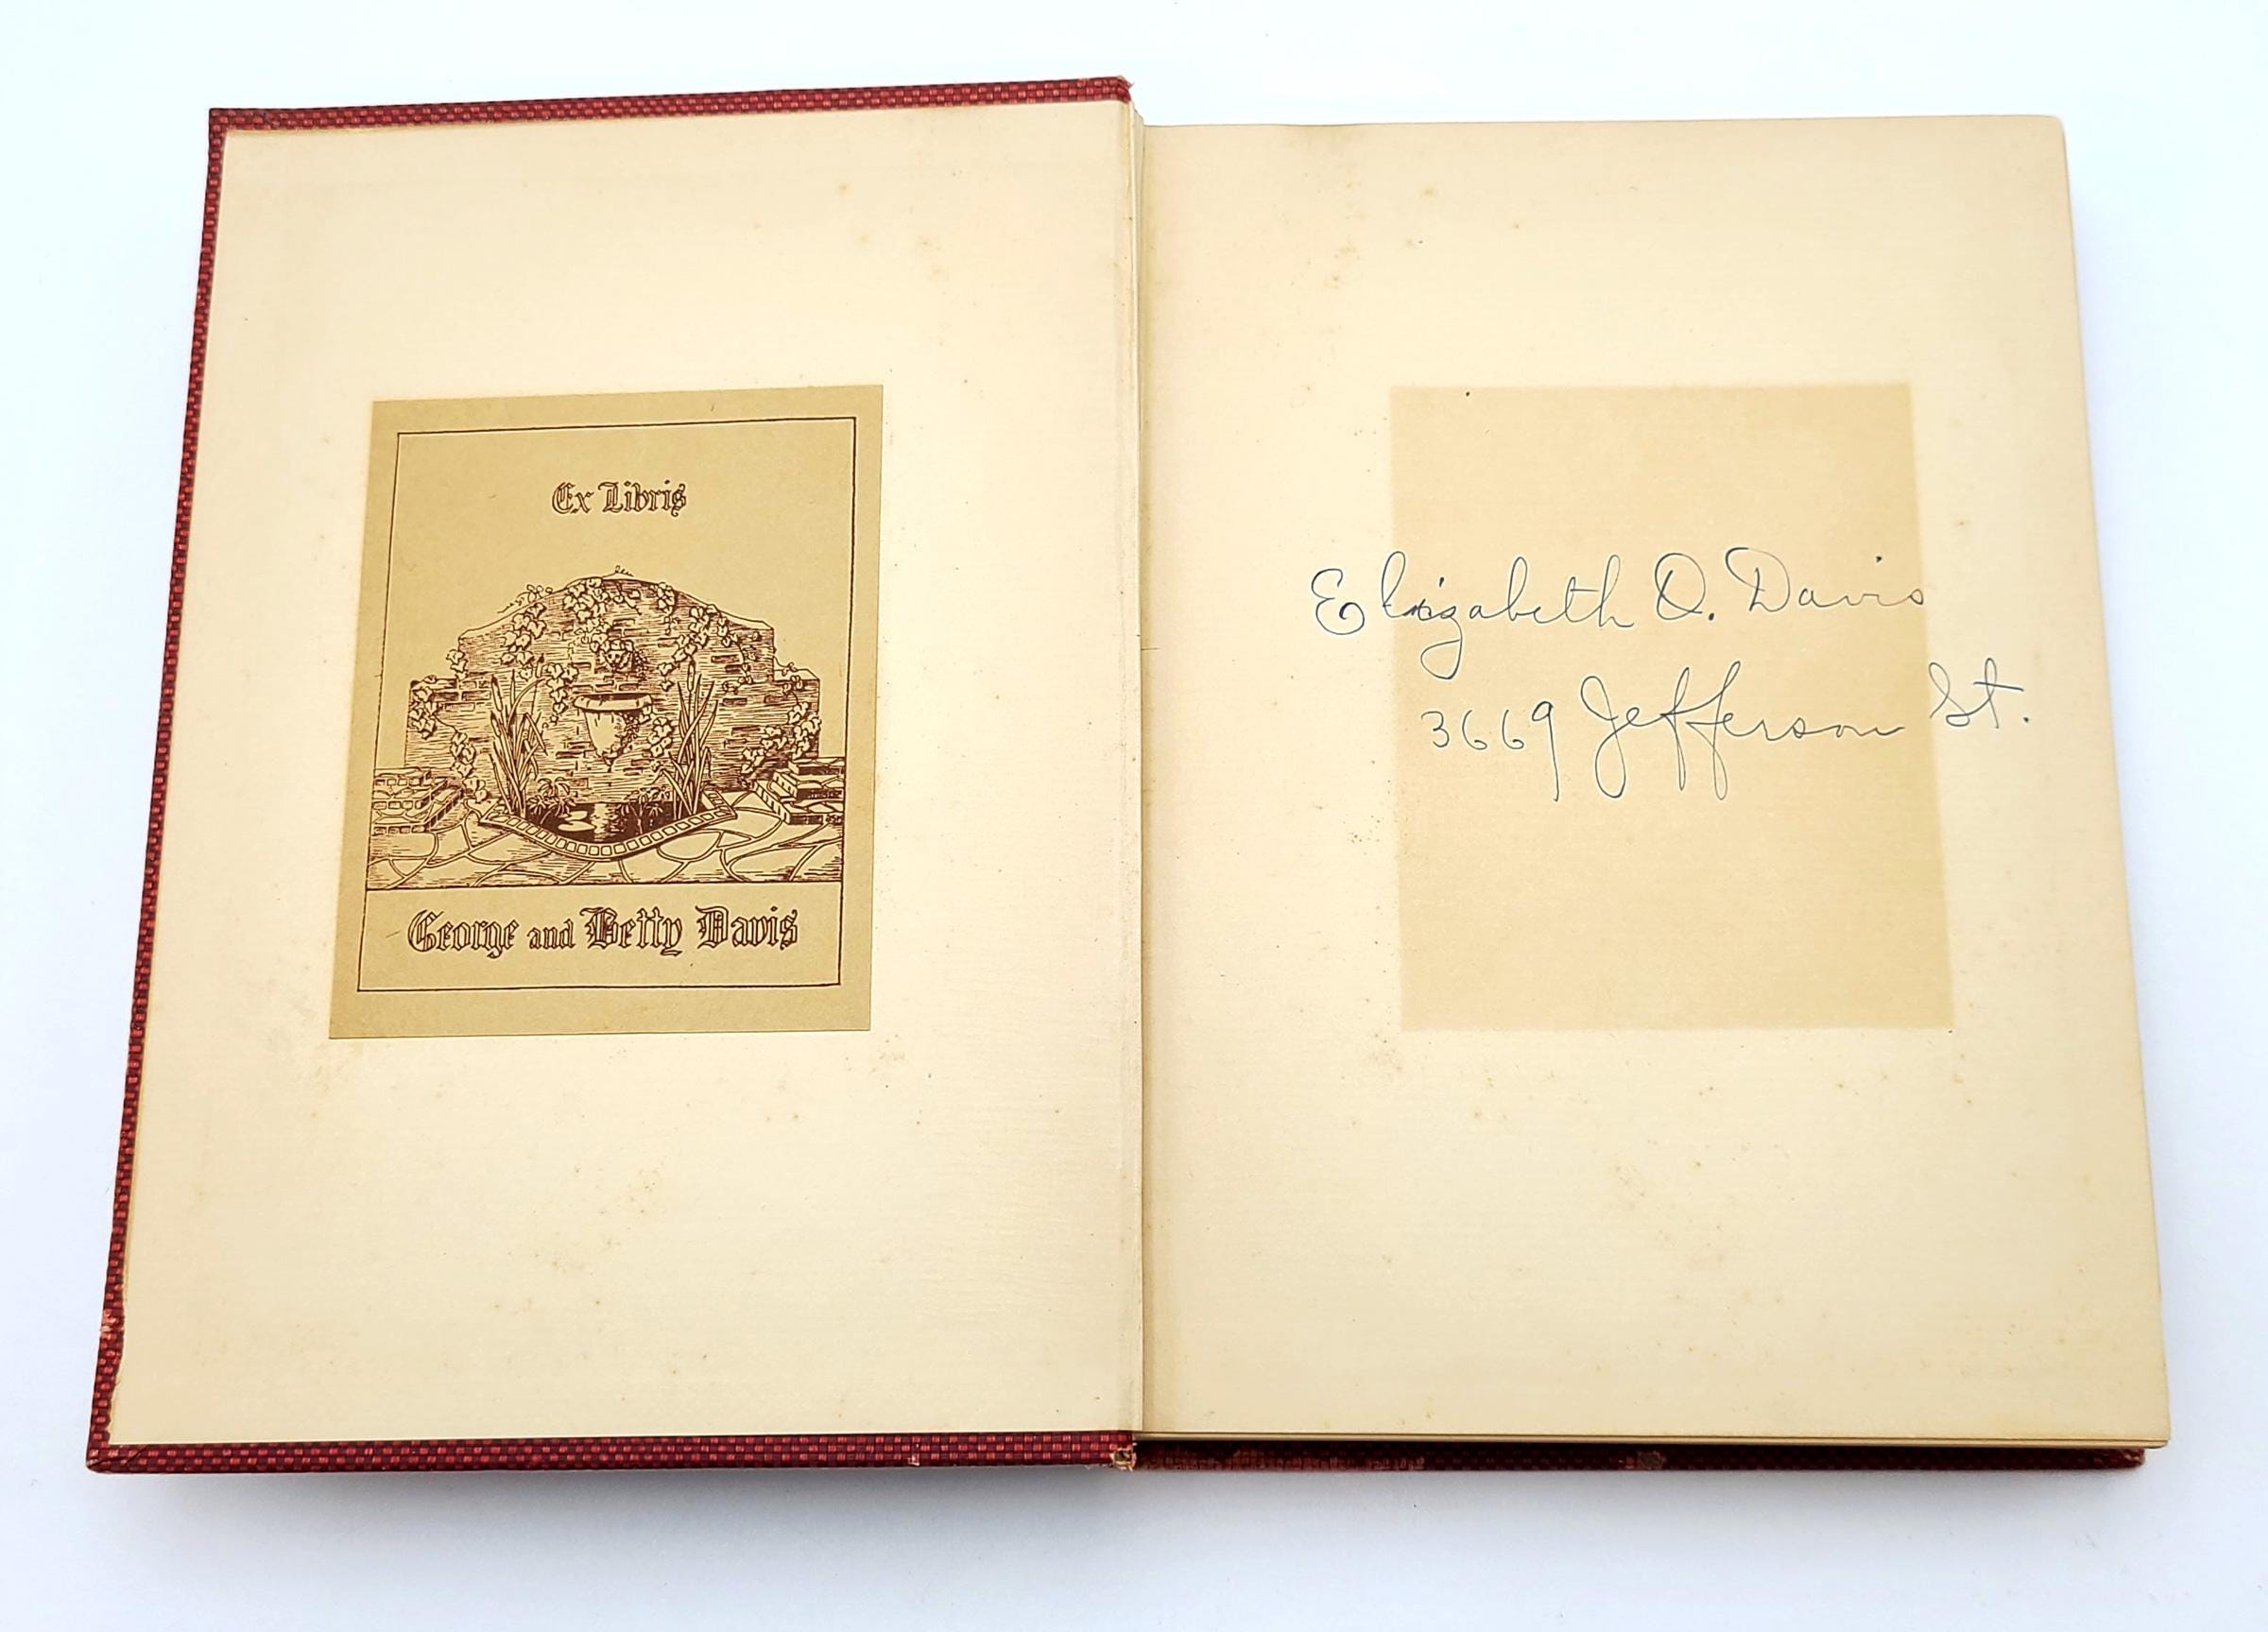 Ex Libris
George and Betty Davis
Elizabeth O. Davis
3669 Jefferson St.